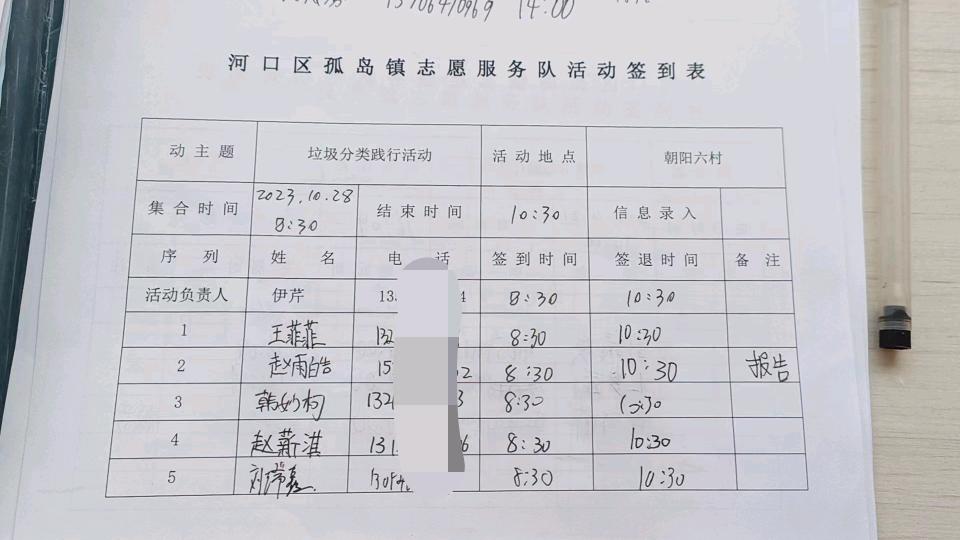 13706410969 14:00
河口区孤岛镇志愿服务队活动签到表
动主题 垃圾分类践行活动 活动地点 朝阳六村
集合时间 2023.10.28 8:30 结束时间 10:30 信息录入
序列 姓名 电话 签到时间 签退时间 备注
活动负责人 伊芹 133 4 8:30 10:30
1 王菲菲 132 8:30 10:30
2 赵雨皓 15 2 8:30 10:30 报告
3 韩妙柯 132 3 8:30 10:30
4 赵薪淮 131 6 8:30 10:30
5 8:30 10:30